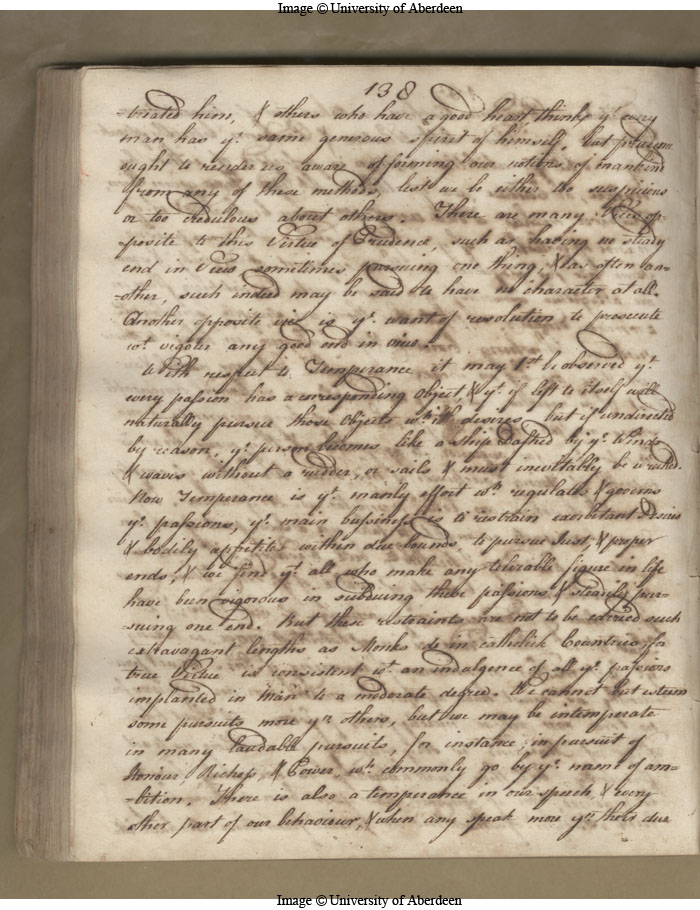 Image © University of Aberdeen
138
-treated him, & others who have a good heart thinks yt. every
man has ye. same generous spirit of himself, but prudence
ought to render us aware of forming our notions of mankind
from any of these methods, lest we be either too suspicious
or too credulous about others. There are many Vices op-
-posite to this Virtue of Prudence, such as having no steady
end in View sometimes pursuing one thing, & as often an=
-other, such indeed may be said to have no character at all.
Another opposite vice is ye. want of resolution to prosecute
wt. vigour any good end in view.
With respect to Temperance it may 1st. be observed yt.
every passion has a corresponding Object, & yt. if left to itself will
naturally pursue those Objects wch. it desires, but if undirected
by reason, ye. person becomes like a Ship tossed by ye. Winds
& waves without a rudder, or sails & must inevitably be wrecked.
Now Temperance is ye. manly effort wch. regulates & governs
ye. passions, ye. main bussiness is to restrain exorbitant Desires
& bodily appetites within due bounds, to pursue Just, & proper
ends, & we find yt. all who make any tolerable figure in life
have been vigorous in subduing these passions & steadily pur=
-suing one end. But these restraints are not to be carried such
extravagant lengths as Monks do in catholick Countries, for
true Virtue is consistent wt. an indulgence of all ye. passions
implanted in Man to a moderate degree. We cannot but esteem
some pursuits more yn. others, but we may be intemperate
in many laudable pursuits, for instance, in pursuit of
Honour, Riches, & Power, wch. commonly go by ye. name of am=
-bition. There is also a temperance in our speech, & every
other part of our behaviour, & when any speak more yn. their due
Image © University of Aberdeen